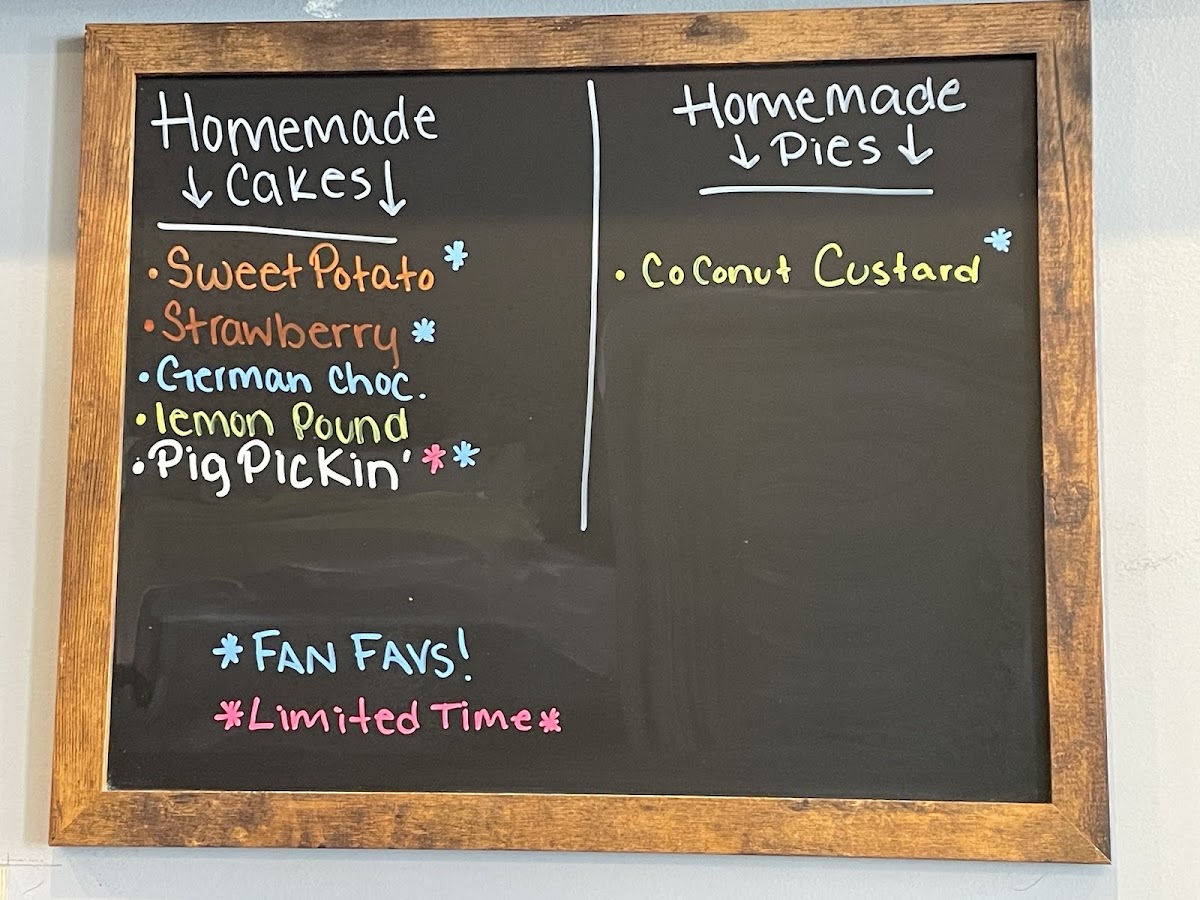 Homemade
↓ Cakes ↓
• Sweet Potato *
• Strawberry *
• German choc.
• lemon Pound
• Pig Pickin' * *
* FAN FAVS!
* Limited Time *
Homemade
↓ Pies ↓
• Coconut Custard *